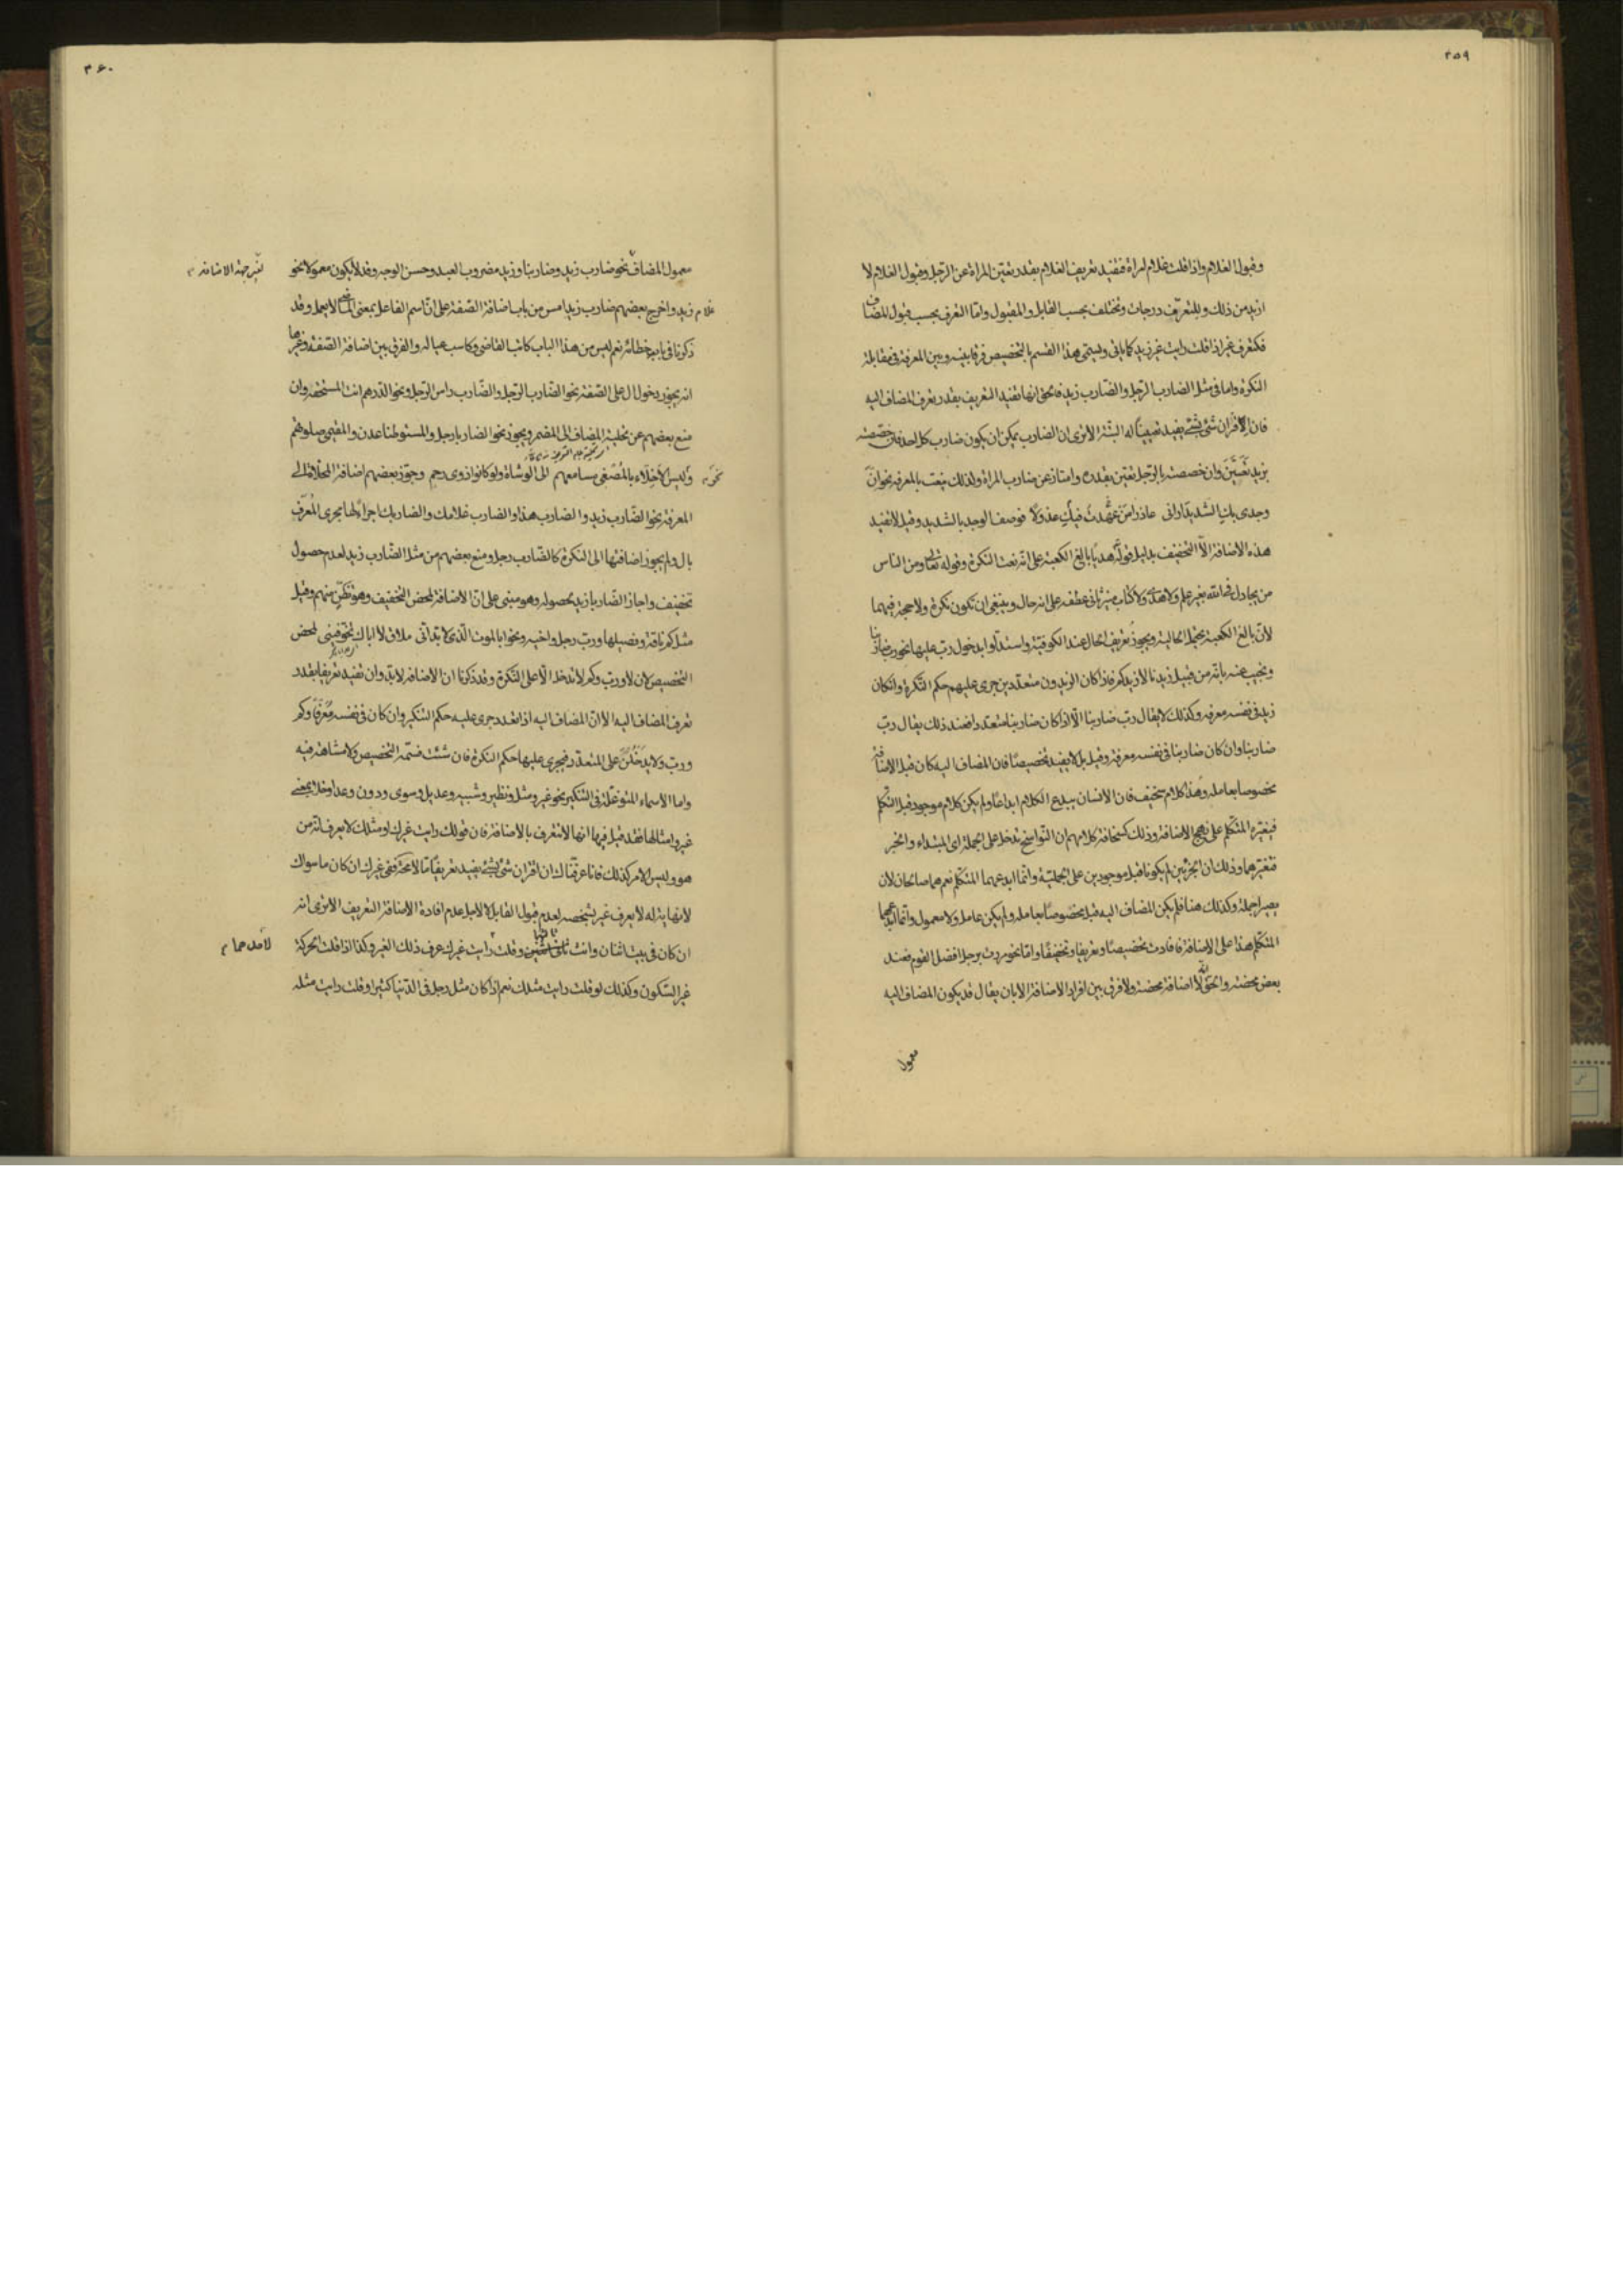 ٣٥٩
وقبول الغلام واذا قلت غلام امراة فتفيد تعريف الغلام بقدر تعيّن المراة عن الرّجل وقبول الغلام لا
ازيد من ذلك وللتعريف درجات وتختلف بحسب القابل والمقبول وامّا التعرف بحسب قبول المضاف
فكتعرف غير اذا قلت رايت غير زيد كما ياتى ويسمّى هذا القسم بالتخصيص فرقا بينه وبين المعرفة فى مقابلة
النكرة واما فى مثل الضارب الرّجل والضّارب زيد فالحق انها تفيد التعريف بقدر تعرف المضاف اليه
فان اقتران شئ بشئ يفيد تعيينًا له البتّة الا ترى ان الضارب يمكن ان يكون ضارب كل احد فان خصصته
بزيد تعيّن وان خصصته بالرّجل تعيّن بقدره وامتاز عن ضارب المراة ولذلك ينعت بالمعرفة نحو انّ
وجدى بك الشديد اراني عاذرا من عهدت فيك عذولا فوصف الوجد بالشديد وقيل لا تفيد
هذه الاضافة الّا التخفيف بدليل قوله هديًا بالغ الكعبة على انّه نعت النكرة وقوله تعالى ومن الناس
من يجادل فى الله بغير علم ولا هدًى ولا كتاب منير ثانى عطفه على انه حال وينبغى ان تكون نكرة ولا حجة فيهما
لانّ بالغ الكعبة يحتمل الحالية ويجوز تعريف الحال عند الكوفيّة واستدلّوا بدخول ربّ عليها نحو ربّ ضاربنا
ونجيب عنه بانّه من قبيل زيدنا لا زيدكم فاذا كان الزيدون متعدّدين جرى عليهم حكم النّكرة وان كان
زيد فى نفسه معرفه وكذلك لا يقال ربّ ضاربنا الّا اذا كان ضاربنا متعدّدا فعند ذلك يقال ربّ
ضاربنا وان كان ضاربنا فى نفسه معرفة وقيل بل لا يفيد تخصيصًا فان المضاف اليه كان قبل الاضافة
مخصوصا بعامله وهذا كلام سخيف فان الانسان يبدع الكلام ابداعًا ولم يكن كلام موجود قبل التكلم
فيغيّره المتكلّم على نهج الاضافة وذلك كسخافة كلامهم ان النّواسخ تدخل على الجملة اى المبتداء والخبر
فتغيّرهما وذلك ان الجزئين لم يكونا قبل موجودين على الجمليّة وانّما ابدعهما المتكلّم نعم هما صالحان لان
يصيرا جملة وكذلك هنا فلم يكن المضاف اليه قبل مخصوصًا بعامله ولم يكن عامل ولا معمول وانّما ابدعهما
المتكلّم هذا على الاضافة فافادت تخصيصًا وتعريفا وتخفيفًا وامّا نحو مررت برجل افضل القوم فعند
بعض محضة والحقّ انّه لا اضافة محضة ولا فرق بين افراد الاضافة الا بان يقال قد يكون المضاف اليه
معمول
٣۶٠
معمول المضاف نحو ضارب زيد وضاربنا وزيد مضروب العبد وحسن الوجه وقد لا يكون معمولا نحو
لغير جهة الاضافة
غلام زيد واخرج بعضهم ضارب زيد امس من باب اضافة الصّفة على انّ اسم الفاعل بمعنى الماضى لا يعمل وقد
ذكرنا فى بابه خطائه نعم ليس من هذا الباب كاتب القاضى وكاسب عياله والفرق بين اضافة الصّفة وغيرها
انه يجوز دخول ال على الصّفة نحو الضّارب الرّجل والضّارب راس الرّجل ونحو الدّرهم انت المستحقه وان
منع بعضهم عن تحلية المضاف الى المضمر ويجوز نحو الضاربا رجل والمستوطنا عدن والمقيمى صلوهم
نحو وليس الاخلّاء بالمُصغى مسامعهم الى الوشاة ولو كانوا ذوى رحم وجوّز بعضهم اضافة المحلّاة الى
المعرفة نحو الضّارب زيد والضارب هذا والضارب غلامك والضاربك اجراءً لها مجرى المُعرّف
بال ولم يجوز اضافتها الى النكرة كالضّارب رجل ومنع بعضهم من مثل الضّارب زيد لعدم حصول
تخفيف واجاز الضّاربا زيد لحصوله وهو مبنى على انّ الاضافة لمحض التخفيف وهو تظنّن منهم وقيل
مثل كم ناقة وفصيلها وربّ رجل واخيه ونحو ابالموت الّذى لا بدّ انّى ملاق لا اباك تخوّفينى لمحض
التخصيص لان لا وربّ وكم لا تدخل الّا على النّكرة وقد ذكرنا ان الاضافة لا بدّ وان تفيد تعريفا بقدر
تعرف المضاف اليه الا انّ المضاف اليه اذا تعدد جرى عليه حكم التنكير وان كان فى نفسه مُعرّفًا وكم
وربّ ولا يدخلن على المتعدّد فيجرى عليها حكم النكرة فان شئت فسمّه التخصيص ولا مشاحة فيه
واما الاسماء المتوغّلة فى التنكير نحو غير ومثل ونظير وشبيه وعديل وسوى ودون وعدا وخلا بمعنى
غير وامثالها فقد قيل فيها انها لا تتعرف بالاضافة فان قولك رايت غيرك او مثلك لا يعرف انّه من
هو وليس الامر كذلك فانا عرفناك ان اقتران شئ بشئ يفيد تعريفًا ما لا محة ففى غيرك ان كان ما سواك
لا نهاية له لا يعرف غير بشخصه لعدم قبول القابل لا لاجل عدم افادة الاضافة التعريف الا ترى انه
ان كان فى بيت اثنان وانت ثالثهما وقلت رايت غيرك عرف ذلك الغير وكذا اذا قلت الحركة
لاحدهما
غير السّكون وكذلك لو قلت رايت مثلك نعم اذا كان مثل رجل فى الدّنيا كثيرا وقلت رايت مثله